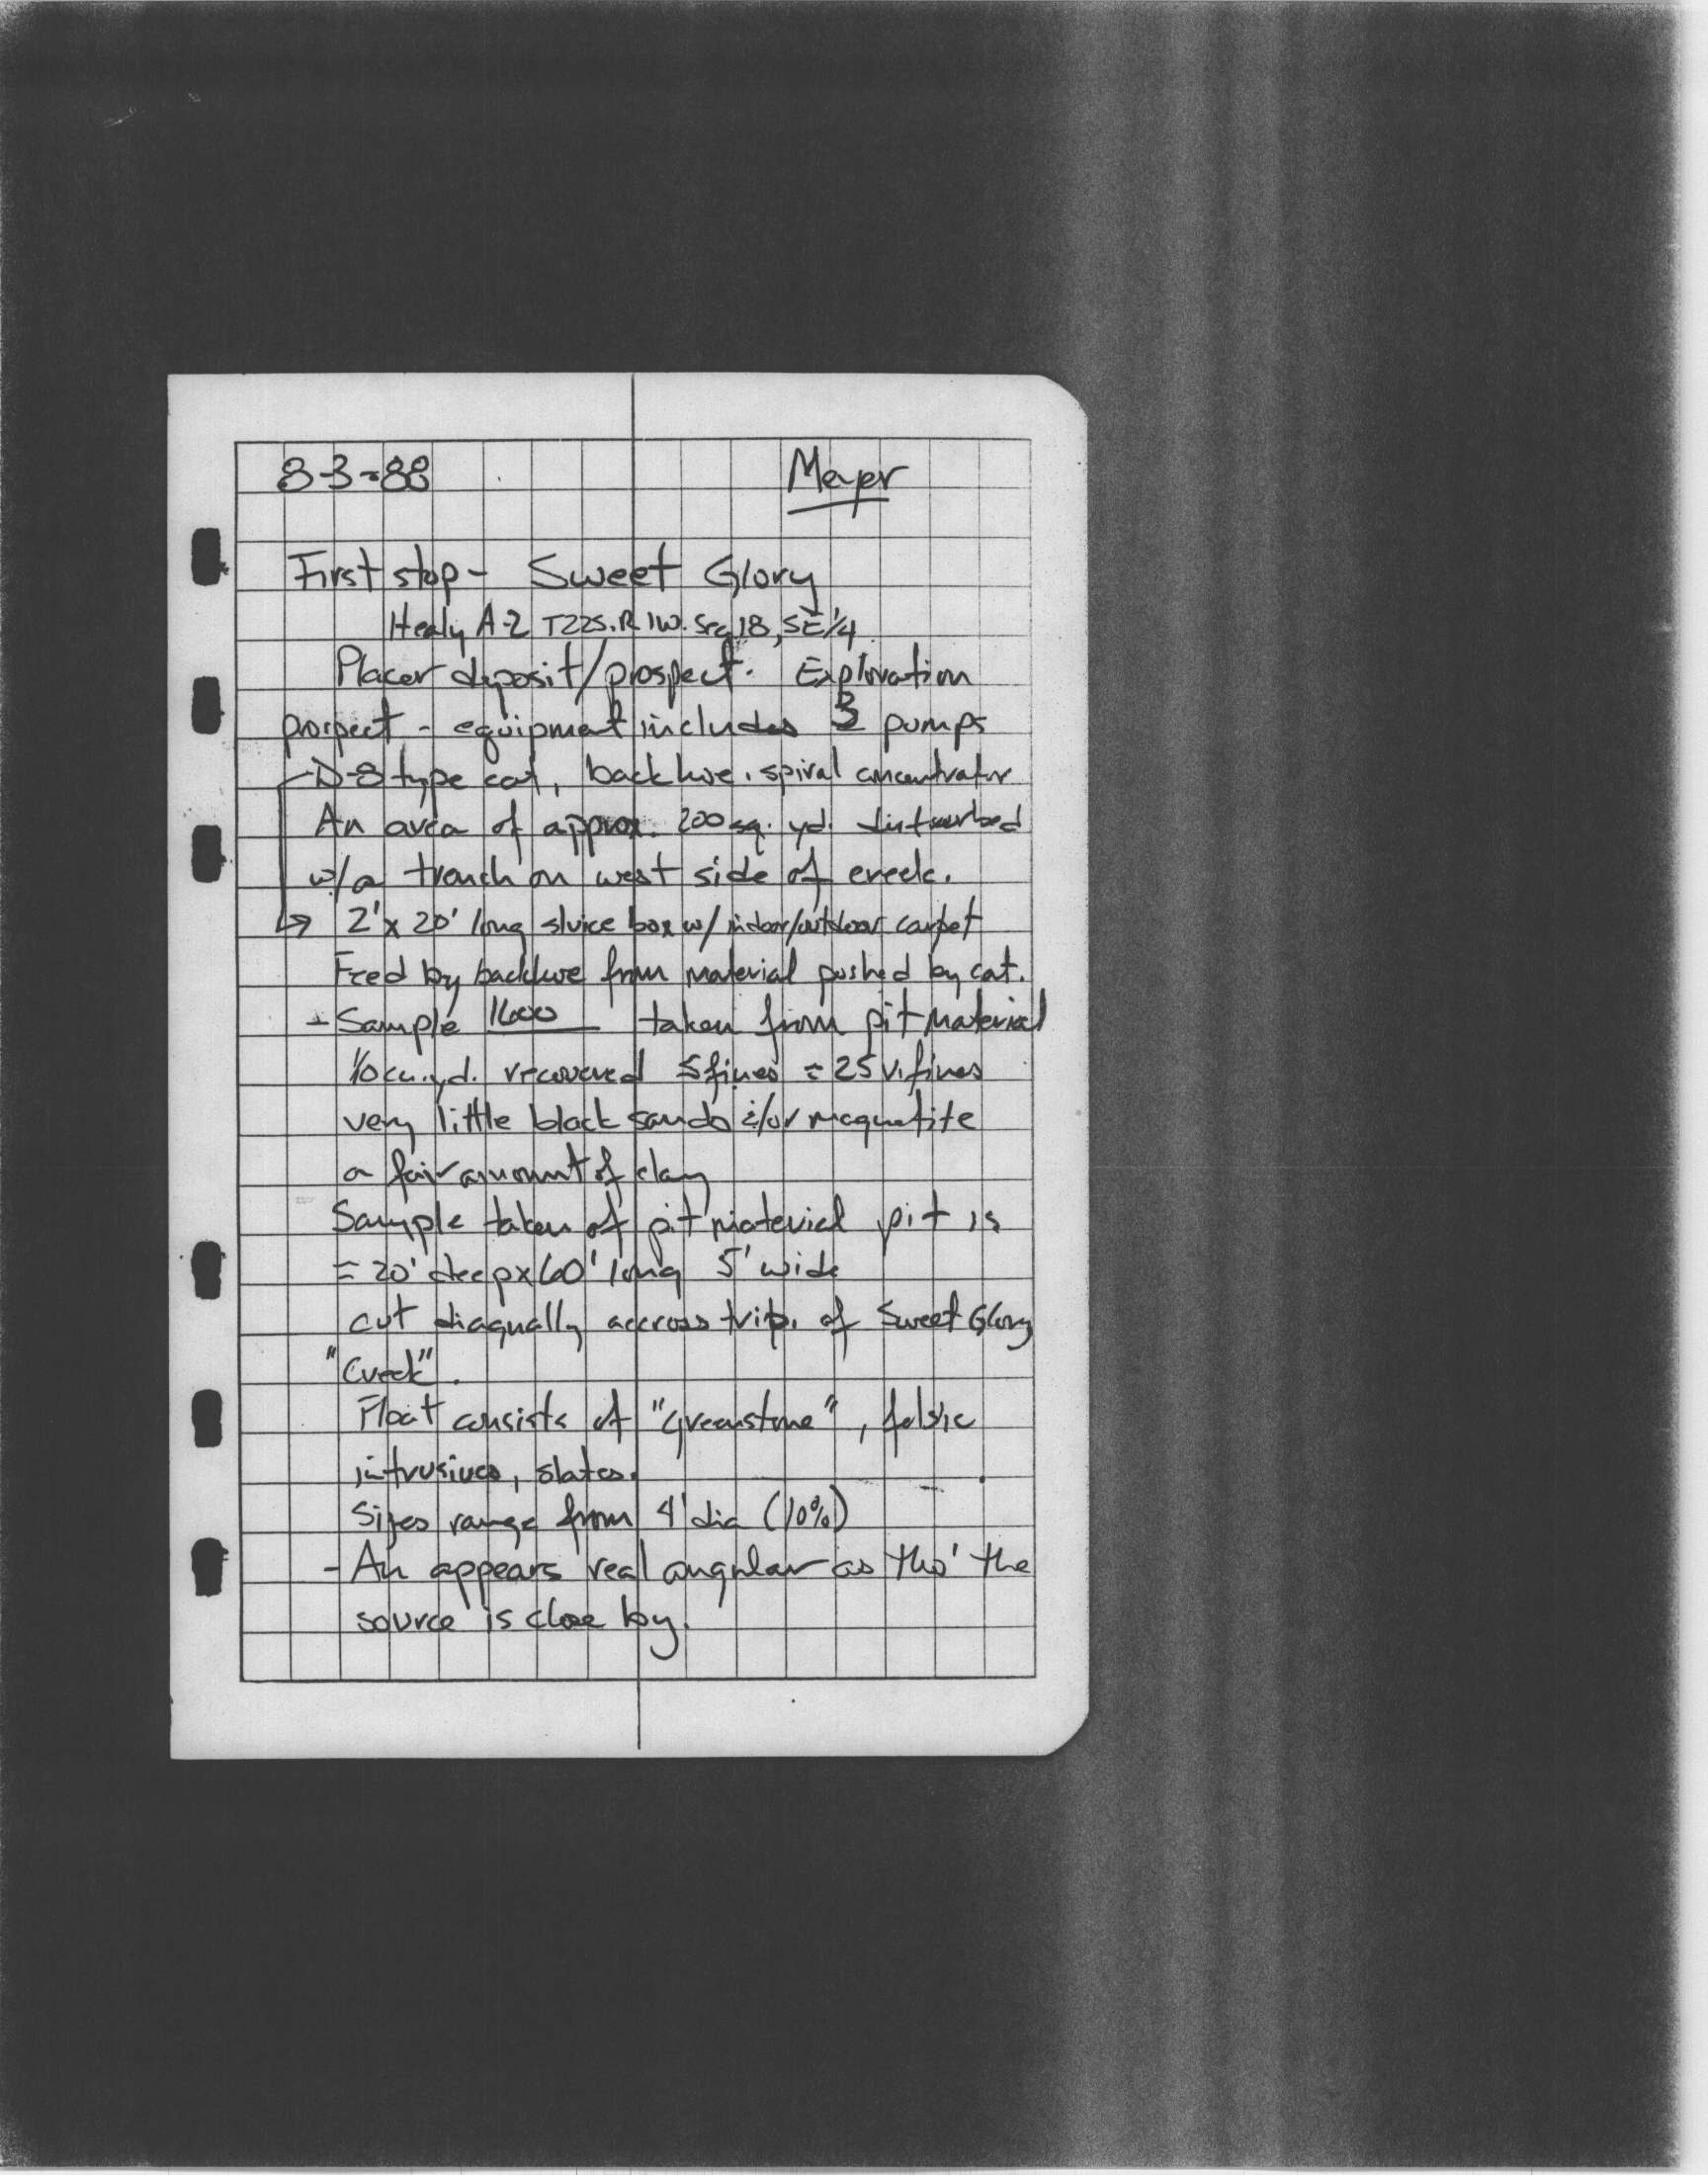 8-3-88 Meyer
First stop - Sweet Glory
Healy A-2 T22S. R1W. Sec 18, SE 1/4
Placer deposit/prospect. Exploration
prospect - equipment includes 3 pumps
D-8 type cat, backhoe. spiral concentrator
An area of approx. 200 sq. yd. disturbed
w/a trench on west side of creek.
→ 2'x 20' long sluice box w/ indoor/outdoor carpet
Feed by backhoe from material pushed by cat.
- Sample 1600 taken from pit material
1/10 cu.yd. recovered 5 fines ≈ 25 v. fines
very little black sands &/or magnetite
a fair amount of clay
Sample taken of pit material pit is
≈ 20' deep x 60' long 5' wide
cut diagually accross trib. of Sweet Glory
"Creek".
Float consists of "greenstone", felsic
intrusives, slates.
Sizes range from 4' dia (10%)
- Au appears real angular as tho' the
source is close by.